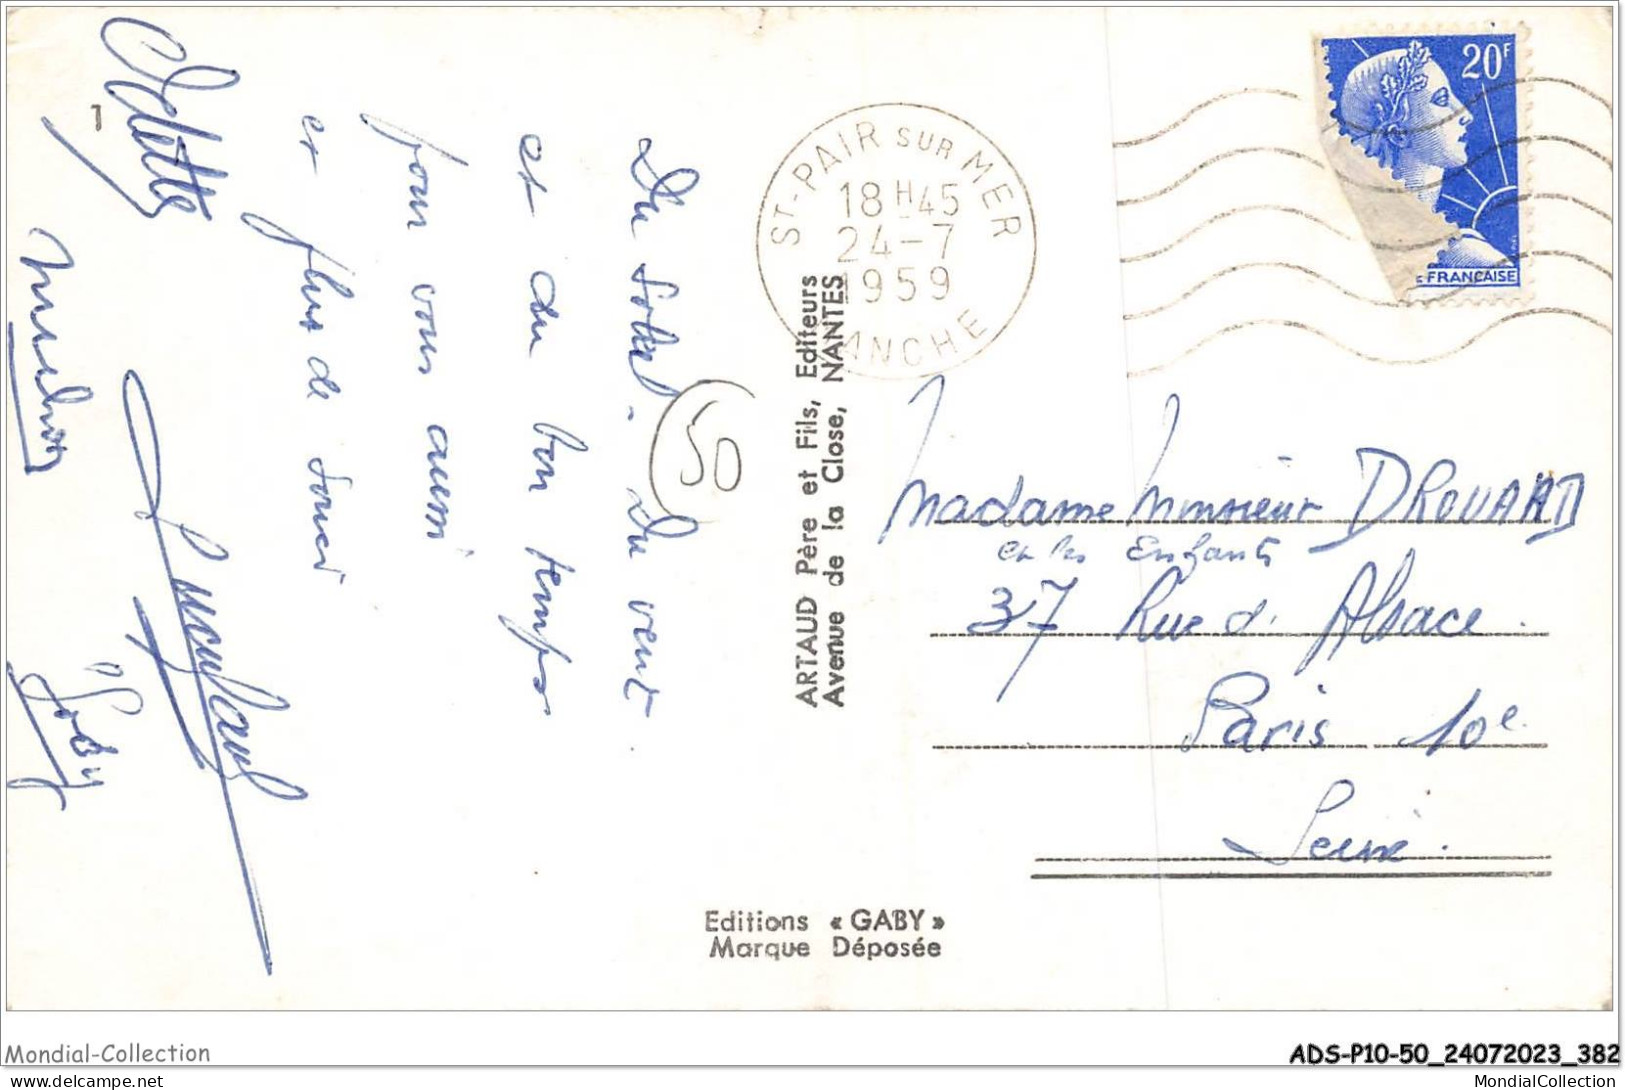 Du Soleil. Du vent.
et du bon temps
pour vous aussi
et plus de souci
Odette
1
50
ST-PAIR SUR MER
18 H 45
24-7
1959
MANCHE
20F
E FRANÇAISE
ARTAUD Père et Fils, Editeurs
Avenue de la Close, NANTES
Madame Monsieur DROUARD
et les Enfants
37 Rue d'Alsace.
Paris 10e.
Seine.
Editions « GABY »
Marque Déposée
Mondial-Collection
ADS-P10-50_24072023_382
delcampe.net
MondialCollection